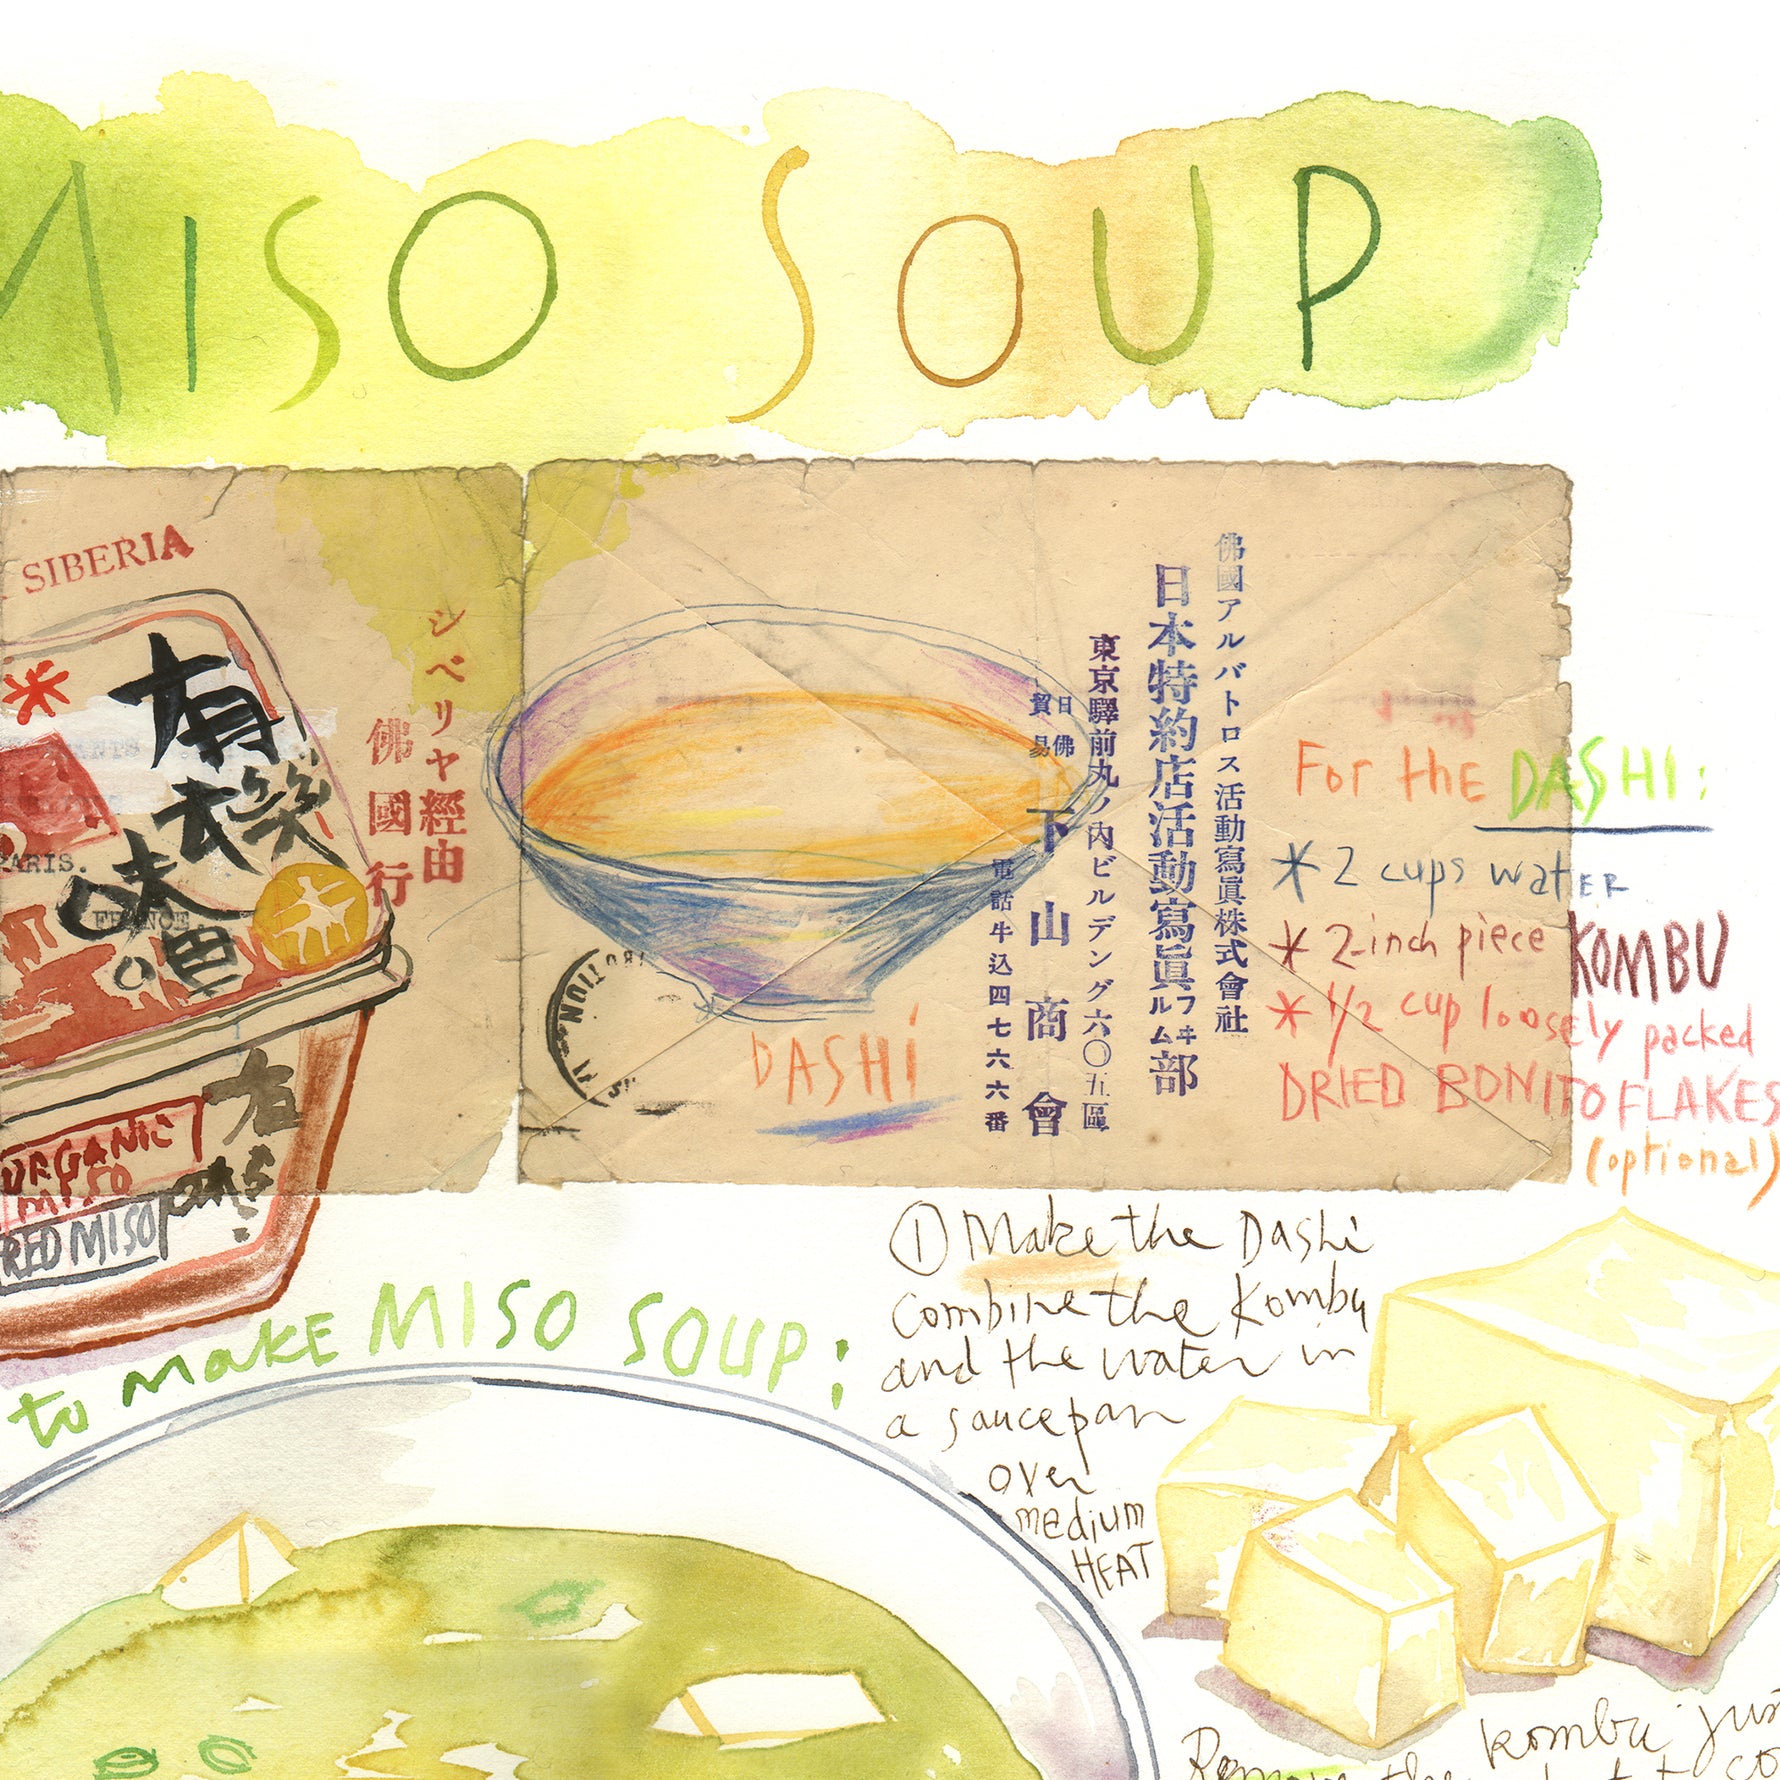 MISO SOUP
SIBERIA
シベリヤ經由
佛國行
有機
味噌
PARIS.
FRANCE
ORGANIC
MISO
RED MISO
佛國アルバトロス活動寫眞株式會社
日本特約店活動寫眞フヰルム部
東京驛前丸ノ内ビルデング六〇五區
日佛貿易
下山商會
電話牛込四七六六番
DASHi
For thE DASHI:
* 2 cups watER
* 2-inch piece KOMBU
* 1/2 cup loosely packed
DRIED BONITO FLAKES
(optional)
to maKE MISO SOUP:
① Make the Dashi
combine the Kombu
and the water in
a saucepan
over
medium
HEAT
kombu